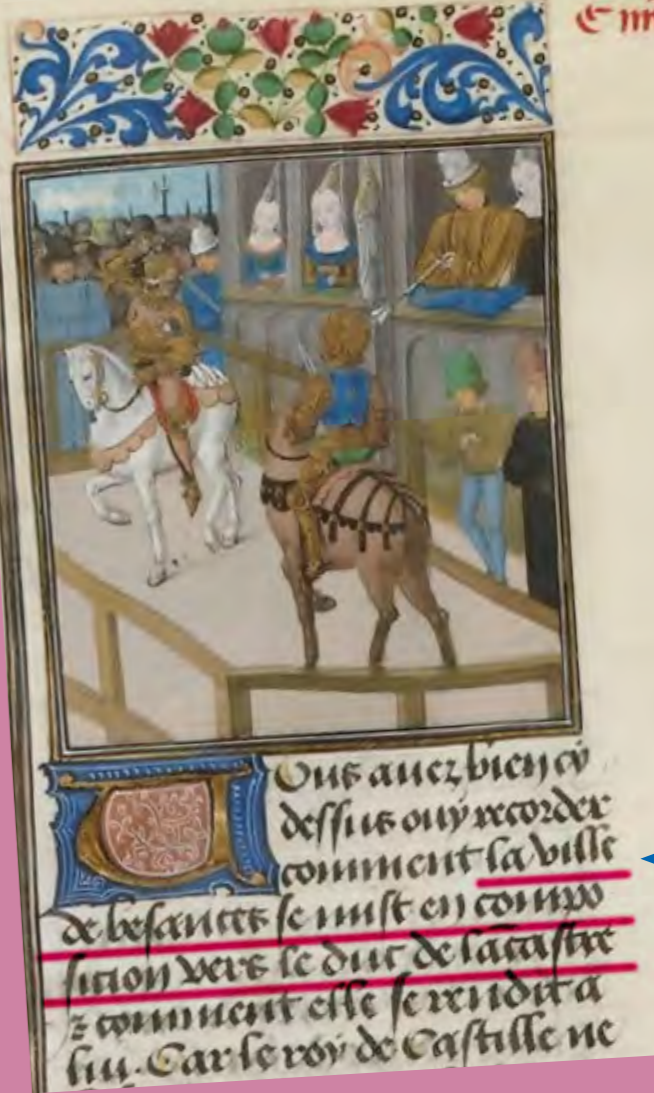 Vous avez bien cy
dessus ouy recorder
comment la ville
de besances se mist en compo
sicion vers le duc de lācastre
⁊ comment elle se rendit a
lui. Car le roy de Castille ne